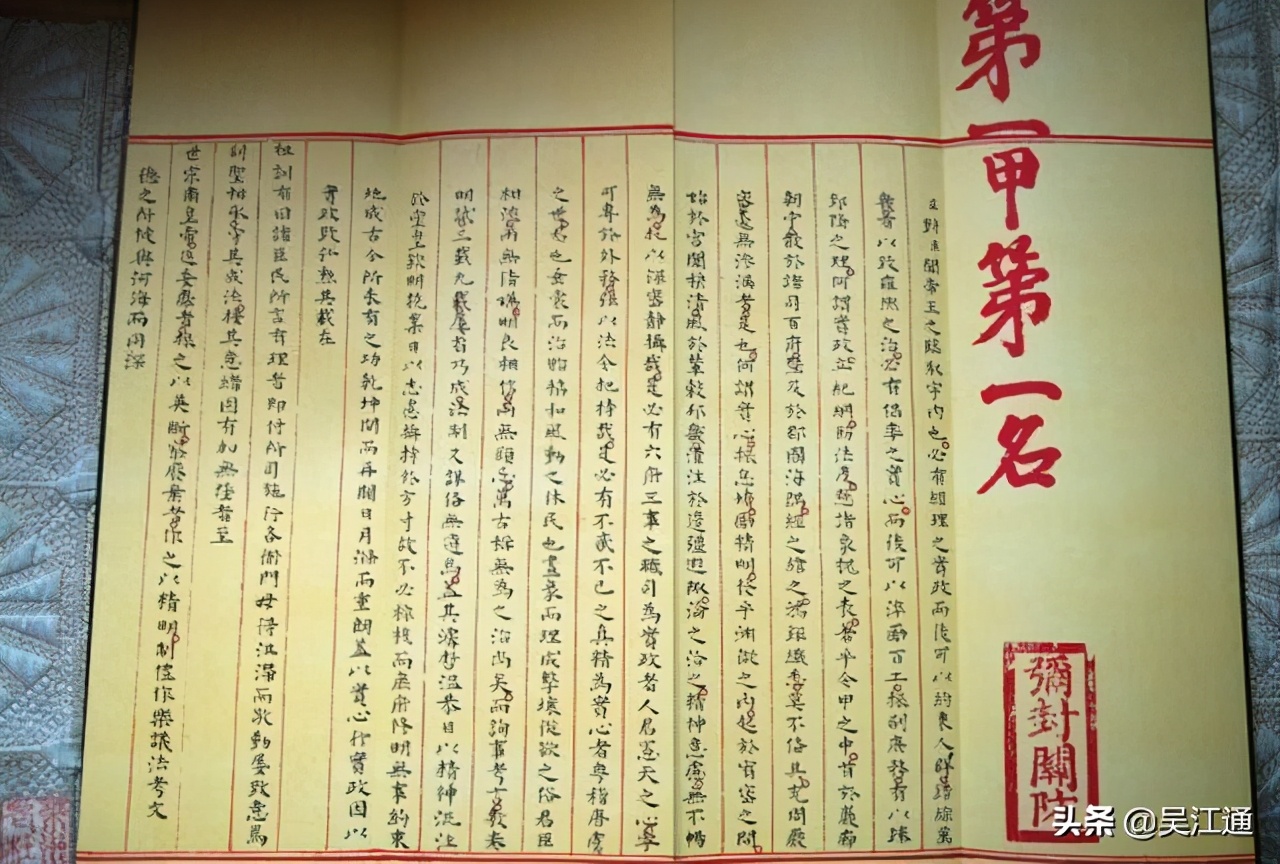 第一甲第一名
彌封關防
臣對臣聞帝王之臨馭宇內也必有經理之實政而後可以約束人群錯綜萬
幾有以致雍熙之治必有倡率之實心而後可以淬勵百工振刷庶務有以臻
郅隆之理何謂實政立紀綱飭法度懸諸象魏之表著乎令甲之中首於巖廊
朝寧散於諸司百府暨及於郡國海隅經之緯之鴻鉅纖悉莫不備具充周嚴
密毫無滲漏者是也何謂實心振怠惰勵精明發乎淵微之內起於宥密之間
始於宮闈風於輦轂邦畿灌注於邊疆遐陬淪之洽之精神意慮無不暢
無為抗以深宮靜攝哉是必有六府三事之職司為實政者人君憲天之心宇
可專於外務强以法令把持哉是必有不貳不已之真精為實心者粵稽唐虞
之世君也垂裳而治貽協和風動之休民也畫象而理成擊壤從欲之俗君臣
相浹兩無猜嫌明良相信兩無顧忌萬古稱無為之治尚矣而詢事考言敷奏
明試三載九載屢省乃成法制又詳備無遺焉蓋其濬哲溫恭日以精神流注
於堂皇欽明兢業日以志慮攝持於方寸故不必綜核而庶府修明無事約束
地成古今所未有之功乾坤闢而再闢日月滌而重朗蓋以實心行實政因以
實政致弘勳其載在
祖訓有曰諸臣民所言有理者即付所司施行各衙門毋得沮滯而敬勤屢致意焉
列聖相承守其成法接其意緒固有加無墜者至
世宗肅皇帝返委靡者振之以英斷察廢棄者作之以精明制禮作樂議法考文
德之所被與河海而同深
头条 @吴江通